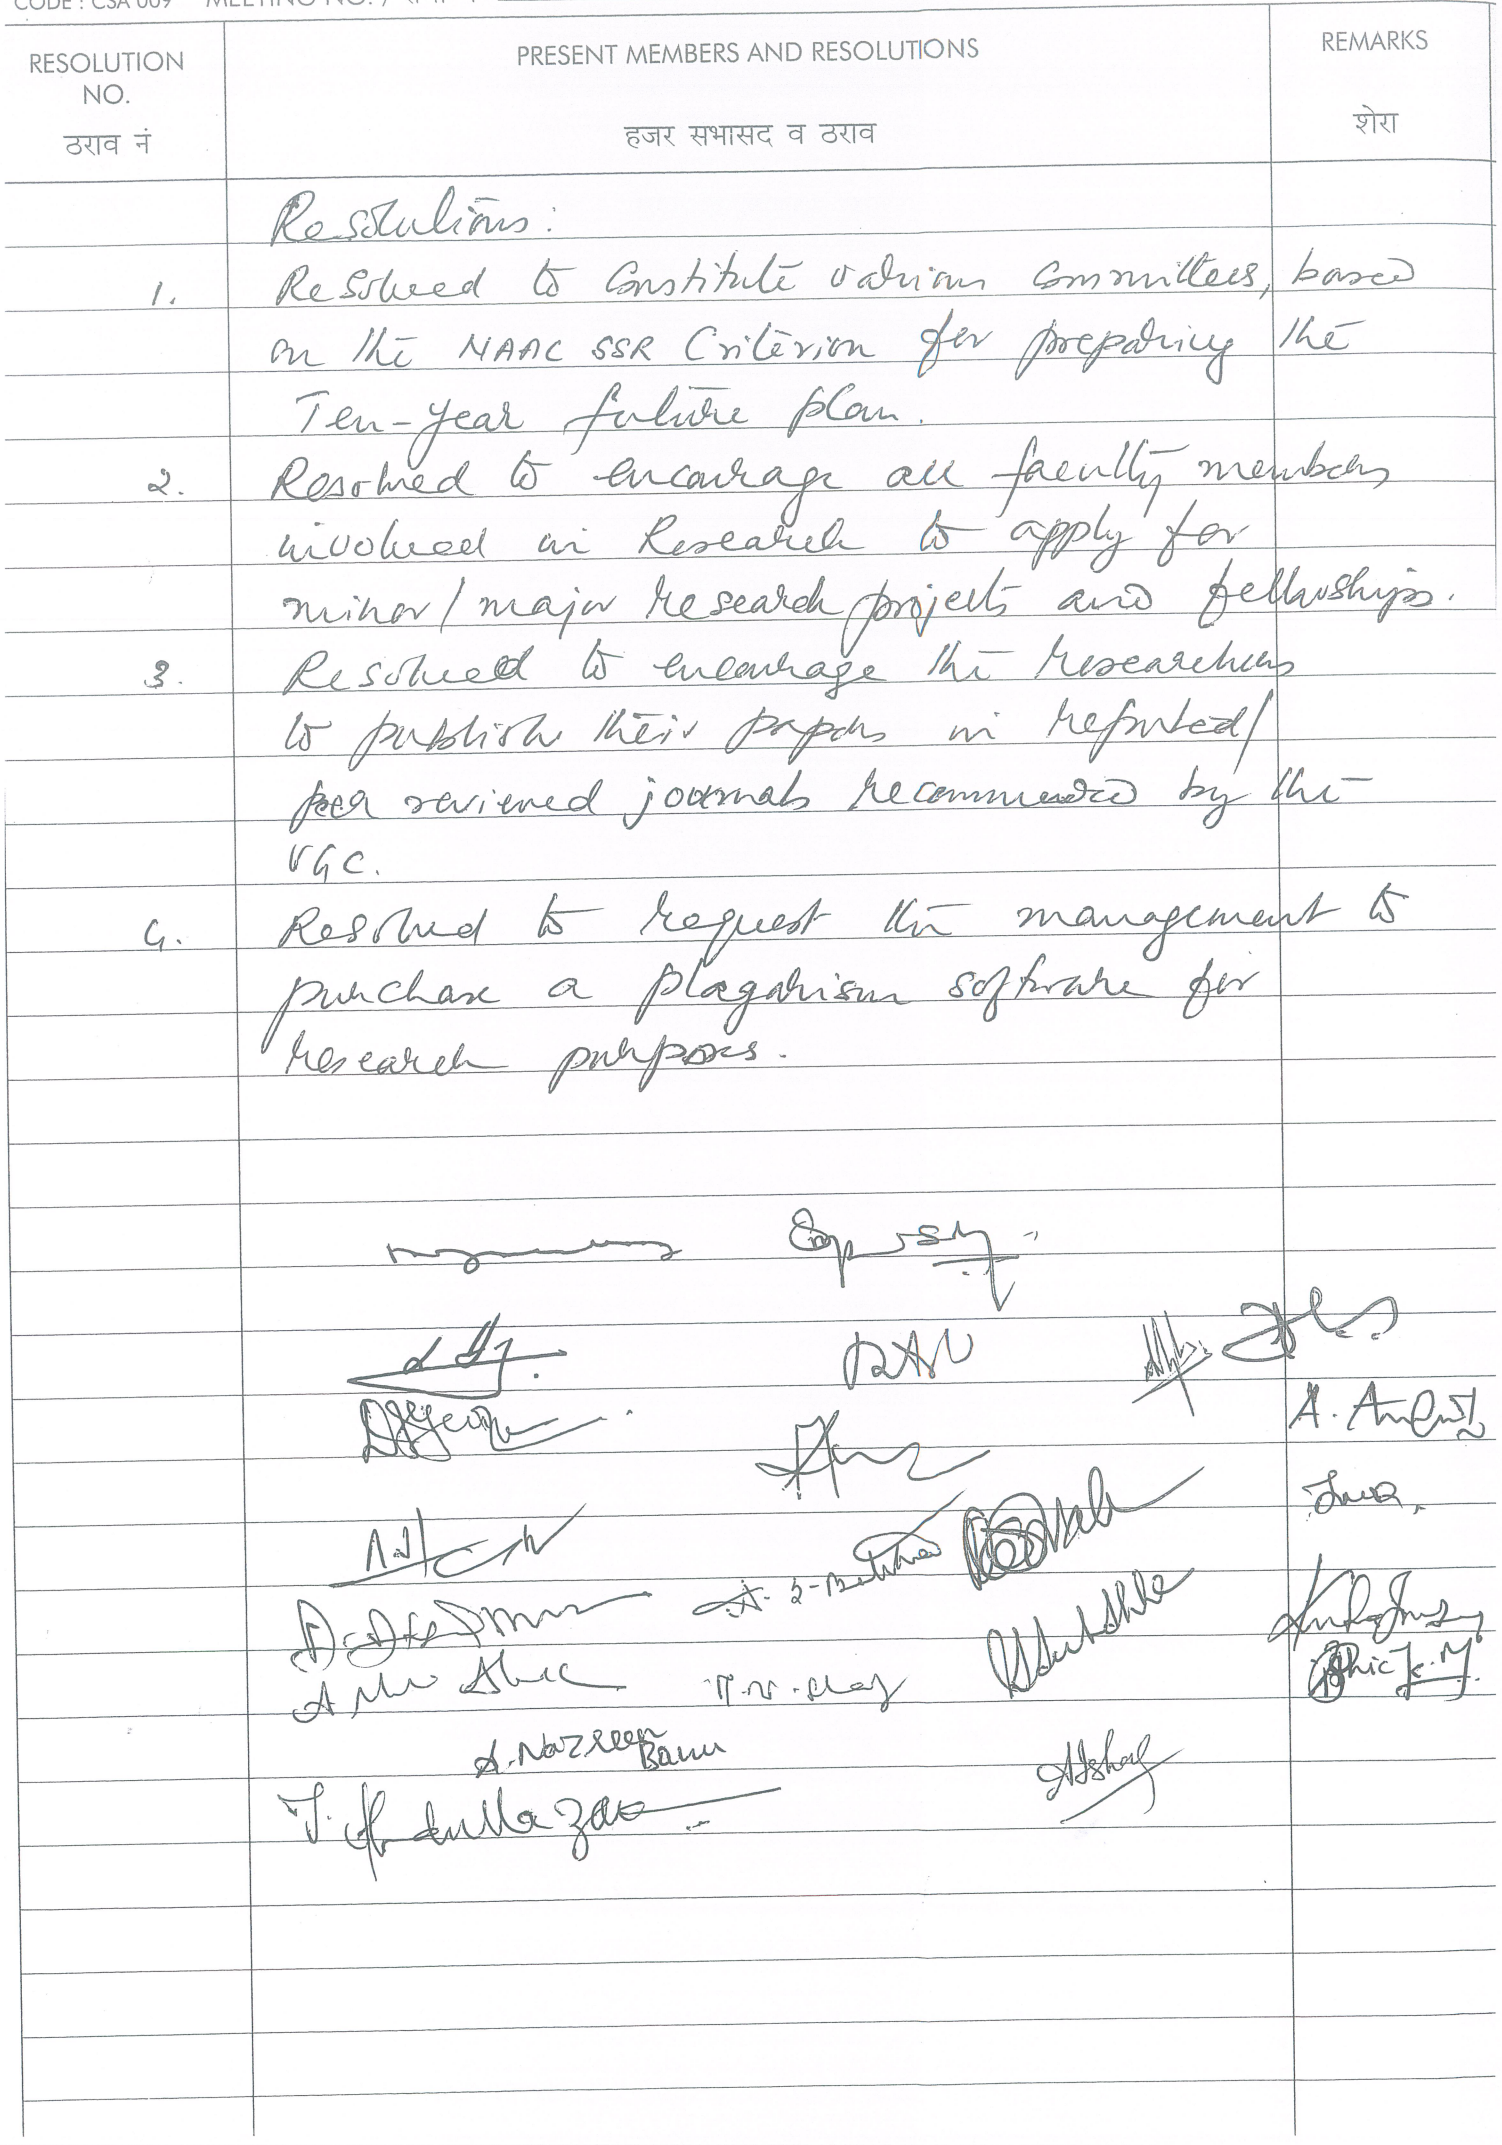 CODE : CSA 009 MEETING NO. /
RESOLUTION NO.
ठराव नं
PRESENT MEMBERS AND RESOLUTIONS
हजर सभासद व ठराव
REMARKS
शेरा
Resolutions:
1. Resolved to Constitute various Committees, based
on the NAAC SSR Criterion for preparing the
Ten-year future plan.
2. Resolved to encourage all faculty members
involved in Research to apply for
minor/major research projects and fellowships.
3. Resolved to encourage the researchers
to publish their papers in reputed/
peer reviewed journals recommended by the
UGC.
4. Resolved to request the management to
purchase a plagarism software for
research purposes.
A. Nazreen Banu